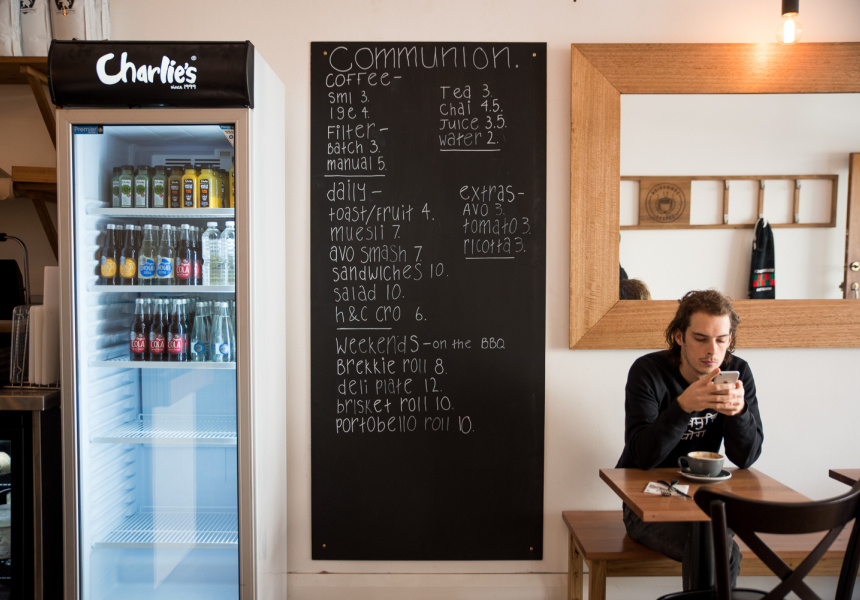 Charlie's
since 1999
Premier
communion.
coffee-
sml 3.
lge 4.
Filter-
Batch 3.
manual 5.
Tea 3.
Chai 4.5.
Juice 3.5.
water 2.
daily-
toast/fruit 4.
muesli 7.
avo smash 7.
sandwiches 10.
salad 10.
h&c cro 6.
extras-
AVO 3.
tomato 3.
ricotta 3.
Weekends - on the BBQ
Brekkie roll 8.
deli plate 12.
brisket roll 10.
portobello roll 10.
COLA
COLA
COLA
COLA